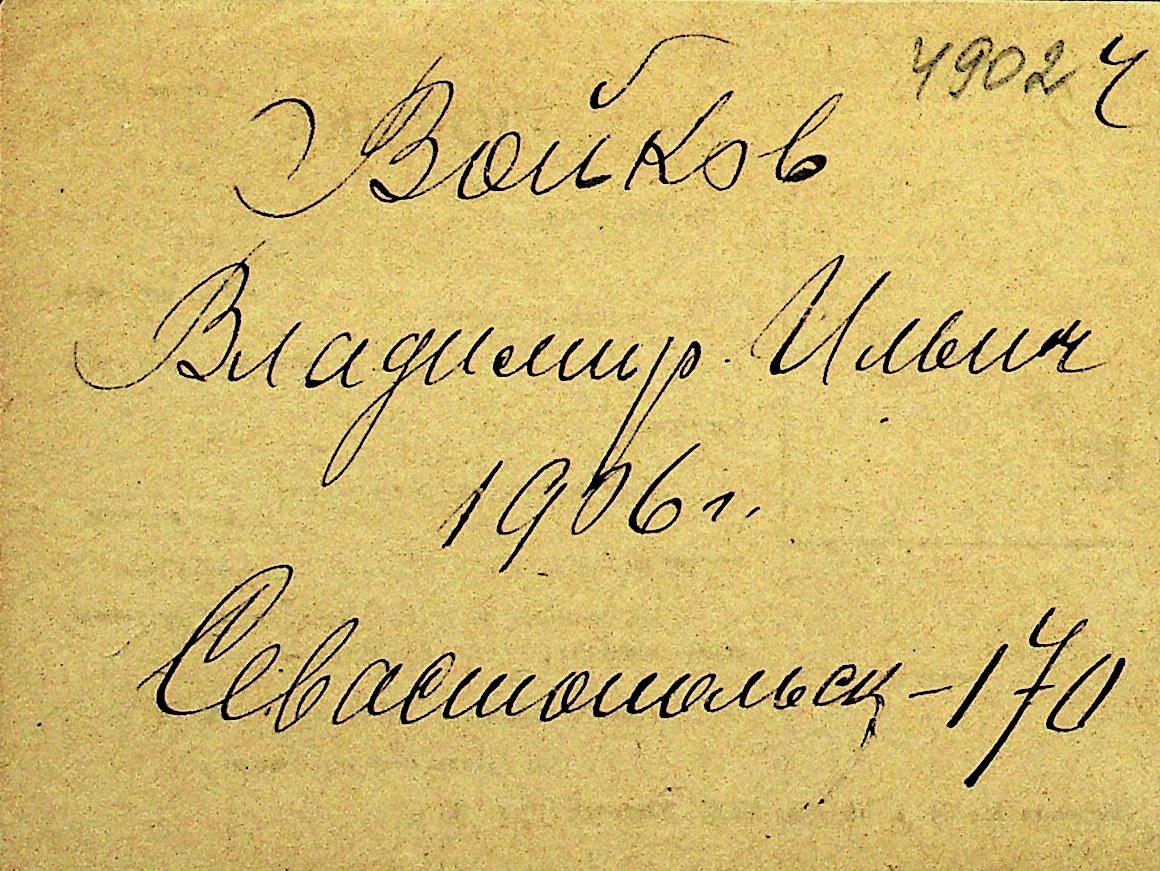 4902 4
Войков
Владимир Ильич
1906 г.
Севастопольск - 170